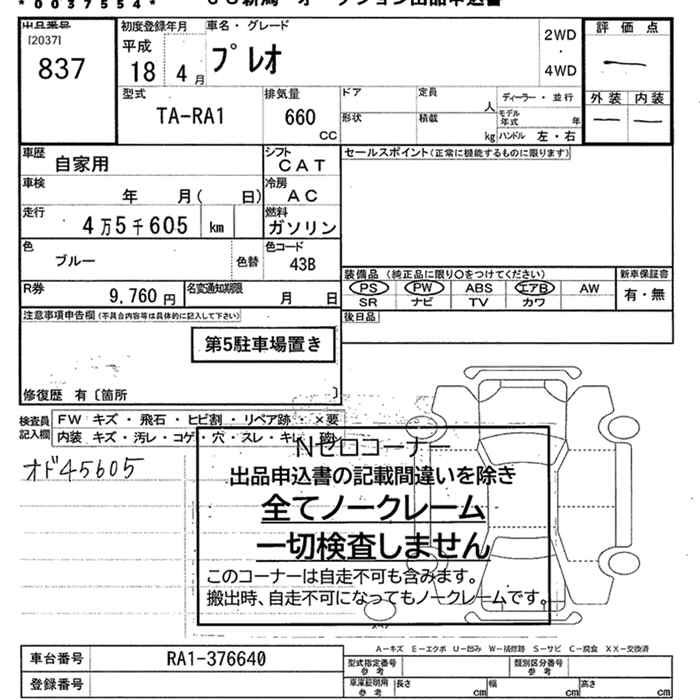 *0037554*
出品番号
[2037]
837
初度登録年月
平成
18 4 月
車名・グレード
プレオ
2WD
・
4WD
評価点
外装 内装
型式
TA-RA1
排気量
660
CC
ドア
形状
定員
人
積載
kg
ディーラー・並行
モデル年式 年
ハンドル 左・右
車歴
自家用
シフト
CAT
セールスポイント(正常に機能するものに限ります)
車検
年 月( 日)
冷房
AC
走行
4万5千605 km
燃料
ガソリン
色
ブルー
色替
色コード
43B
装備品(純正品に限り○をつけてください)
PS PW ABS エアB AW
SR ナビ TV カワ
新車保証書
有・無
R券
9,760 円
名変通知期限
月 日
後日品
注意事項申告欄(不具合内容等は具体的に記入して下さい)
第5駐車場置き
修復歴 有〔箇所 〕
検査員
記入欄
FW キズ・飛石・ヒビ割・リペア跡・×要
内装 キズ・汚レ・コゲ・穴・スレ・キレ
オド45605
Nゼロコーナー
出品申込書の記載間違いを除き
全てノークレーム
一切検査しません
このコーナーは自走不可も含みます。
搬出時、自走不可になってもノークレームです。
A-キズ E-エクボ U-凹み W-補修跡 S-サビ C-腐食 XX-交換済
車台番号
RA1-376640
登録番号
型式指定番号
参考
類別区分番号
参考
車庫証明用
参考
長さ cm
幅 cm
高さ cm